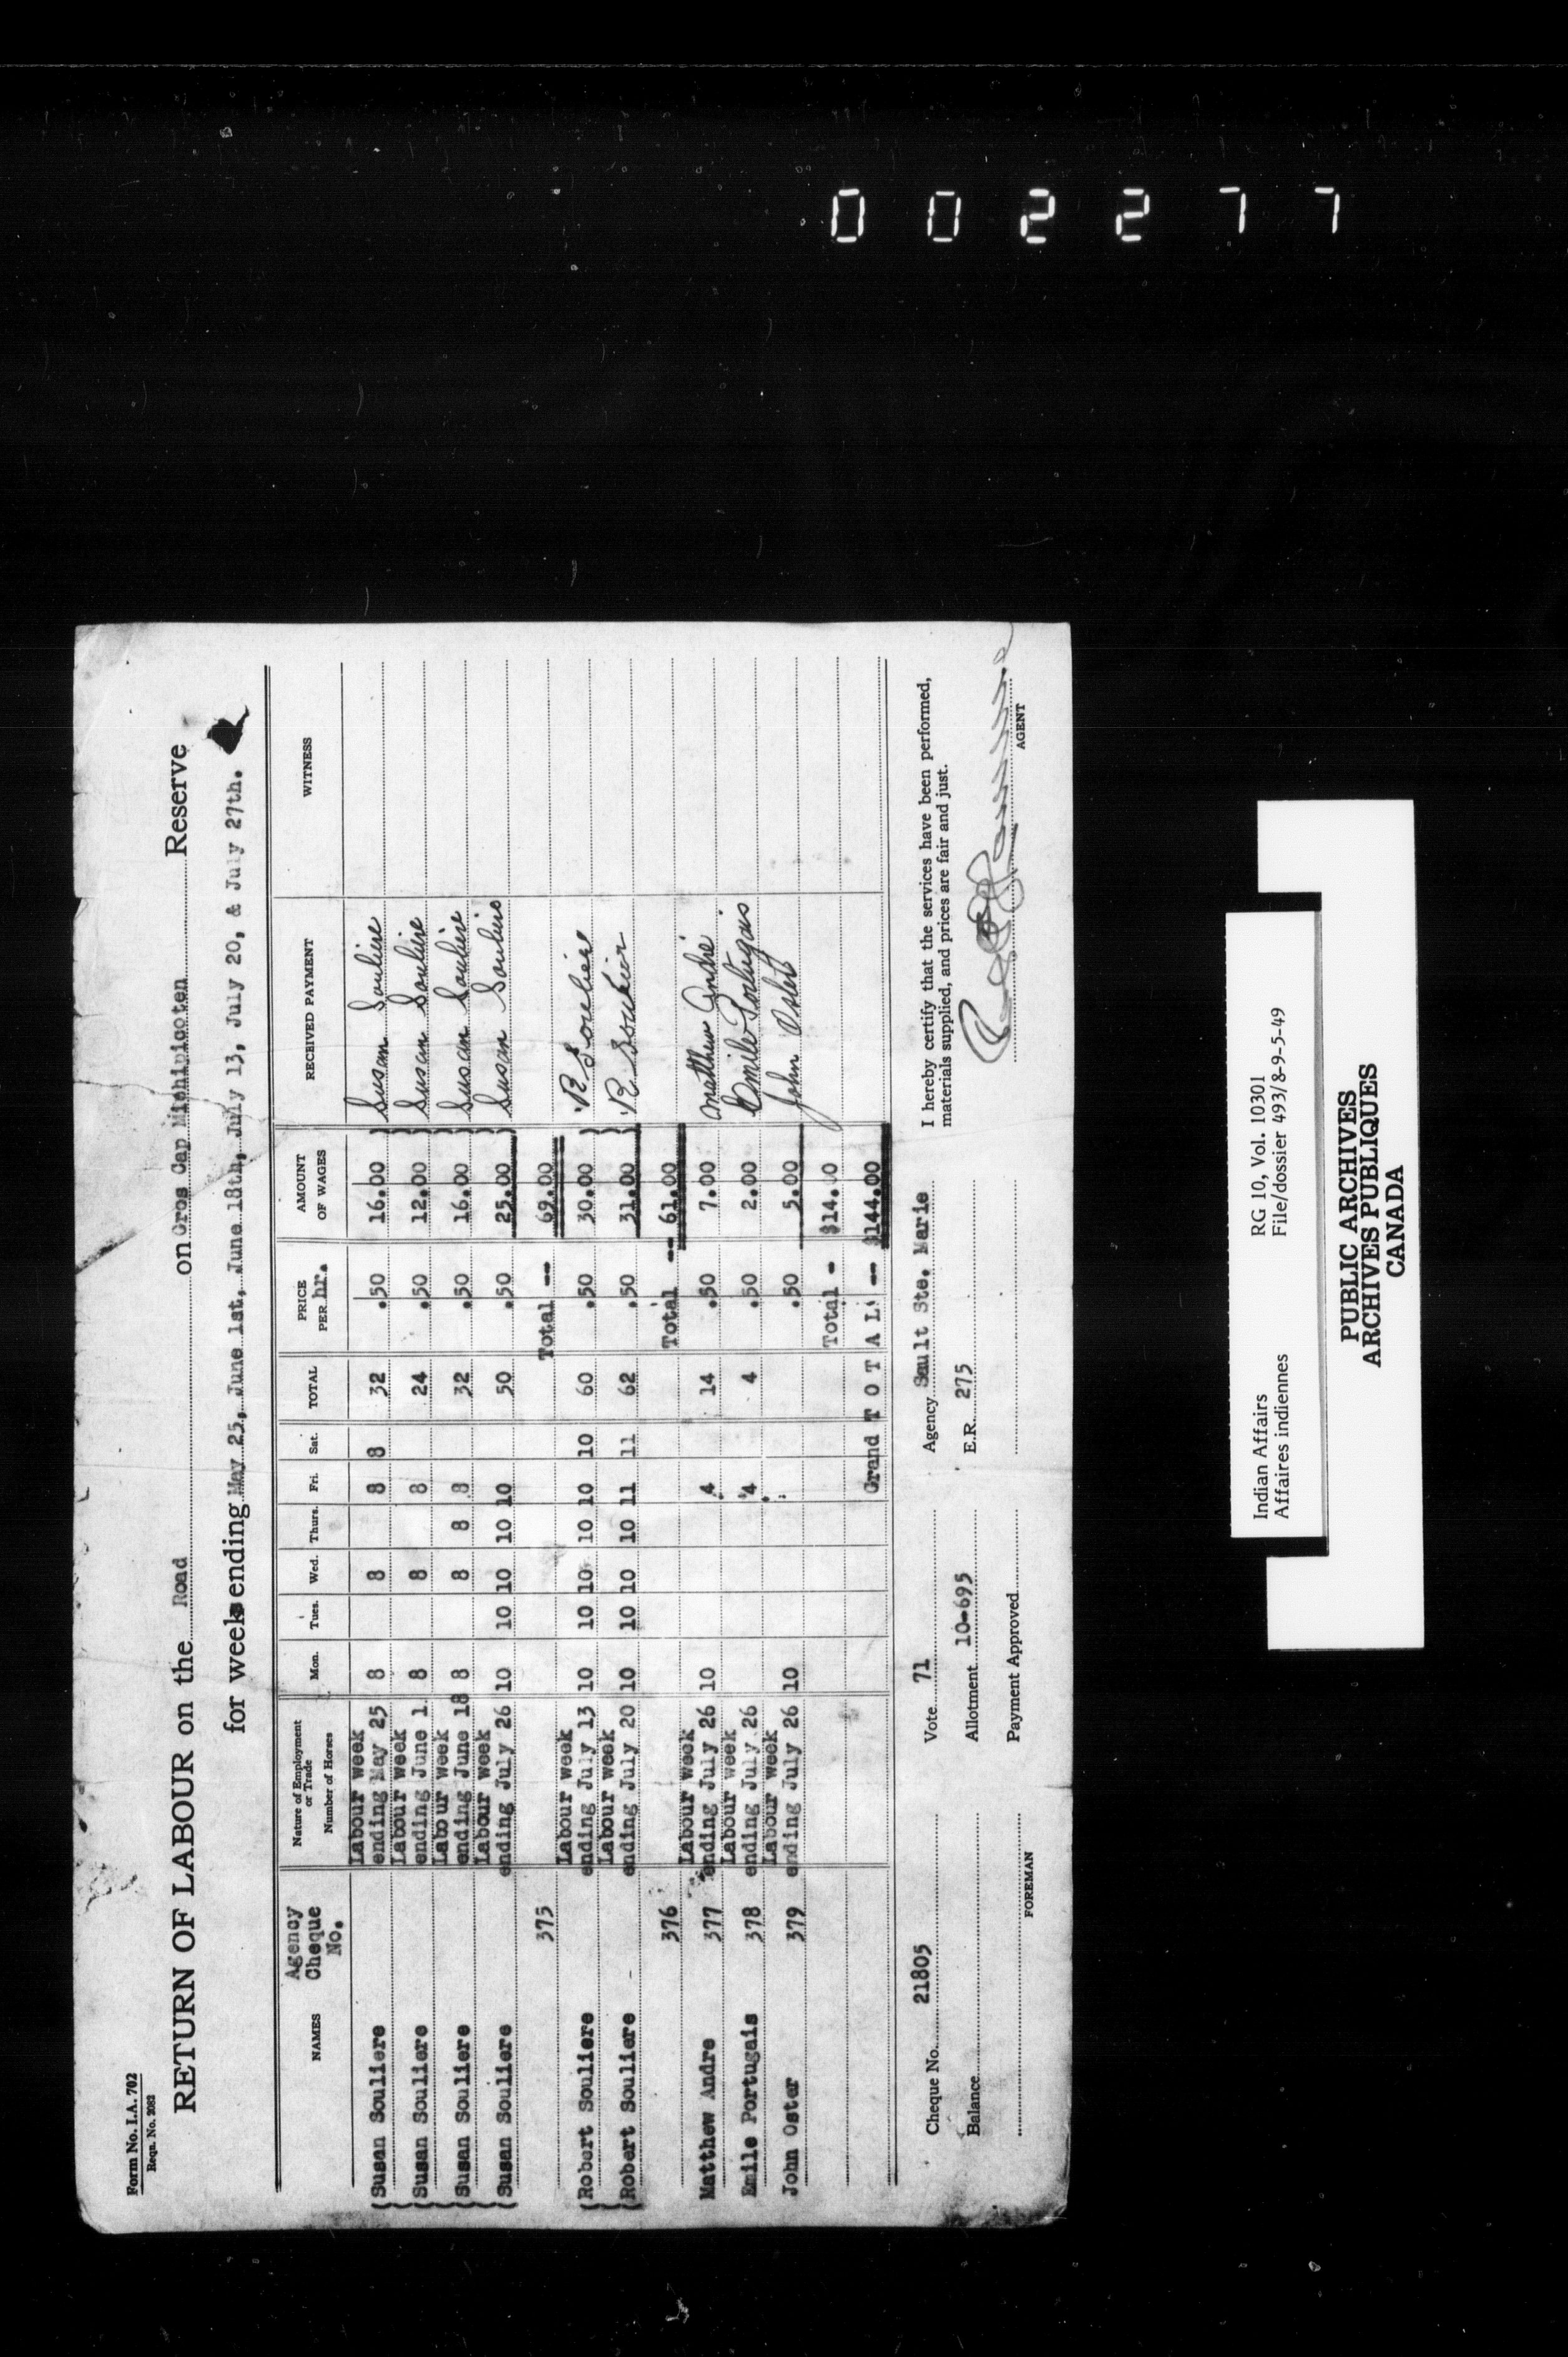 002277
Form No. I.A. 702
Reqn. No. 2082
RETURN OF LABOUR on the Road on Gros Cap Michipicoten Reserve
for weeks ending May 25, June 1st, June 18th, July 13, July 20, & July 27th.
NAMES Agency Cheque No. Nature of Employment or Trade Number of Horses Mon. Tues. Wed. Thurs. Fri. Sat. TOTAL PRICE PER hr. AMOUNT OF WAGES RECEIVED PAYMENT WITNESS
(Susan Souliere Labour week ending May 25 8 8 8 8 32 .50 16.00 ) Susan Souliere
(Susan Souliere Labour week ending June 1 8 8 8 24 .50 12.00 ) Susan Souliere
(Susan Souliere Labour week ending June 18 8 8 8 8 32 .50 16.00 ) Susan Souliere
(Susan Souliere Labour week ending July 26 10 10 10 10 10 50 .50 25.00 ) Susan Souliere
375 Total -- 69.00
(Robert Souliere Labour week ending July 13 10 10 10 10 10 10 60 .50 30.00 ) R Soulier
(Robert Souliere Labour week ending July 20 10 10 10 10 11 11 62 .50 31.00 ) R Soulier
376 Total -- 61.00
Matthew Andre 377 Labour week ending July 26 10 4 14 .50 7.00 Matthew André
Emile Portugais 378 Labour week ending July 26 4 4 .50 2.00 Emile Portugais
John Oster 379 Labour week ending July 26 10 .50 5.00 John Oster
Total - $14.00
Grand TOTAL -- $144.00
Cheque No. 21805 Vote 71 Agency Sault Ste. Marie I hereby certify that the services have been performed,
materials supplied, and prices are fair and just.
Balance Allotment 10-695 E.R. 275
Payment Approved
FOREMAN AGENT
Indian Affairs RG 10, Vol. 10301
Affaires indiennes File/dossier 493/8-9-5-49
PUBLIC ARCHIVES
ARCHIVES PUBLIQUES
CANADA